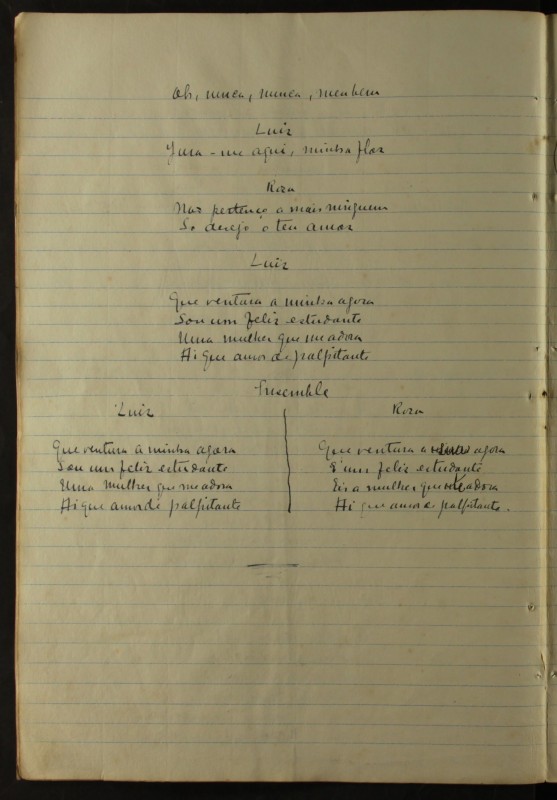 Oh, nunca, nunca, meu bem
Luiz
Jura-me aqui, minha flor
Roza
Nao pertenço a mais ninguem
So desejo o teu amor
Luiz
Que ventura a minha agora
Sou um feliz estudante
Uma mulher que me adora
Ai que amor de palpitante
Ensemble
Luiz
Que ventura a minha agora
Sou um feliz estudante
Uma mulher que me adora
Ai que amor de palpitante
Roza
Que ventura a agora
E' um feliz estudante
Eis a mulher que adora
Ai que amor de palpitante.